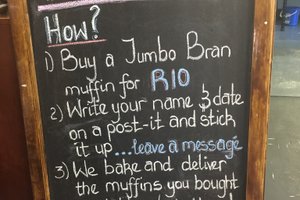 How?
1) Buy a Jumbo Bran
muffin for R10
2) Write your name & date
on a post-it and stick
it up ...leave a message
3) We bake and deliver
the muffins you bought